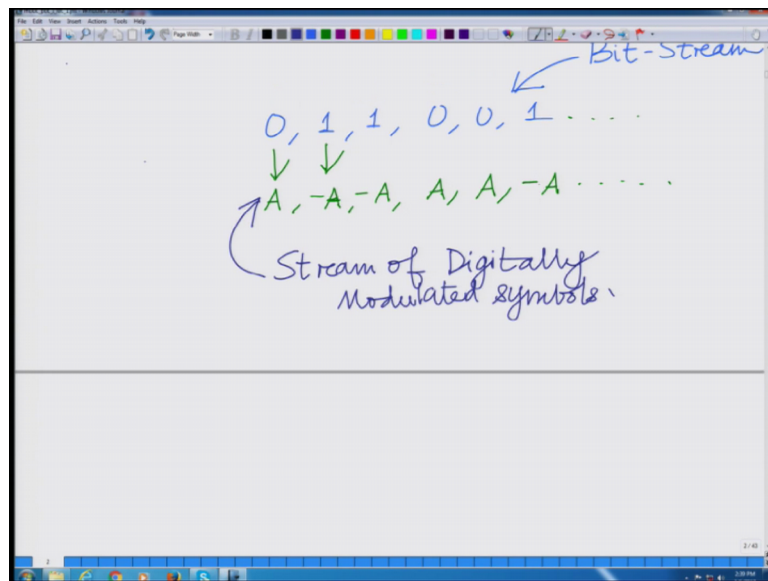 File Edit View Insert Actions Tools Help
Page Width
B I
Bit-Stream
0, 1, 1, 0, 0, 1 . . . .
A, -A, -A, A, A, -A . . . . .
Stream of Digitally
Modulated symbols.
2
2/43
2:39 PM